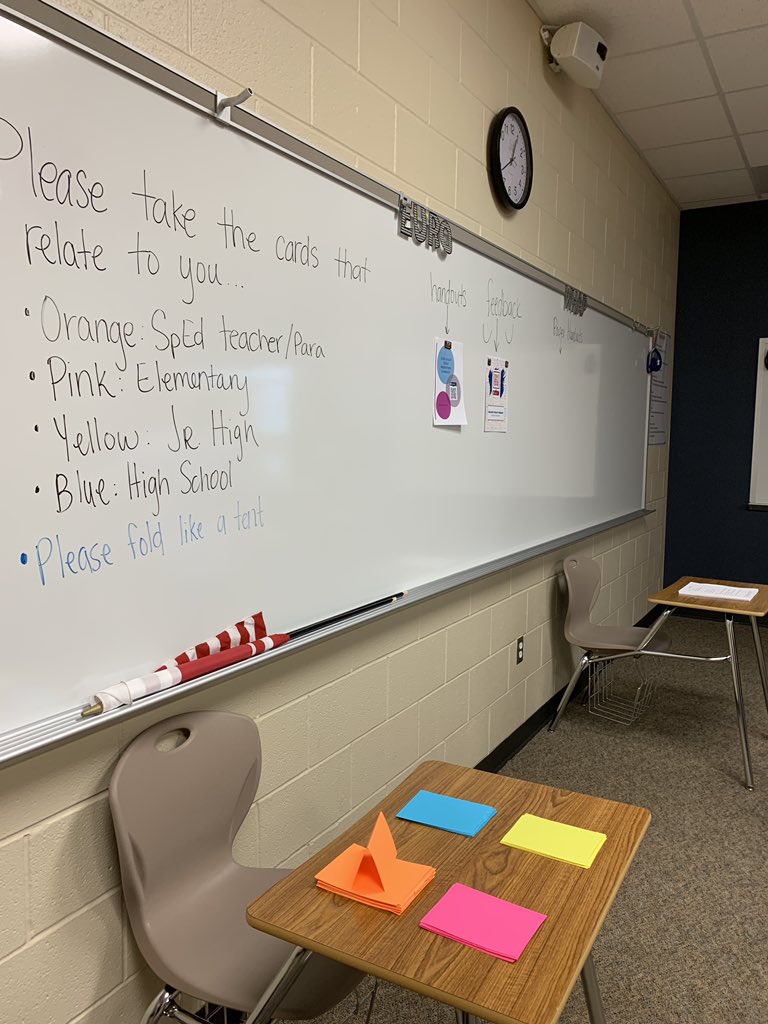 Please take the cards that
relate to you...
• Orange: SpEd teacher/Para
• Pink: Elementary
• Yellow: Jr High
• Blue: High School
• Please fold like a tent
EURO
handouts
feedback
Paper handouts